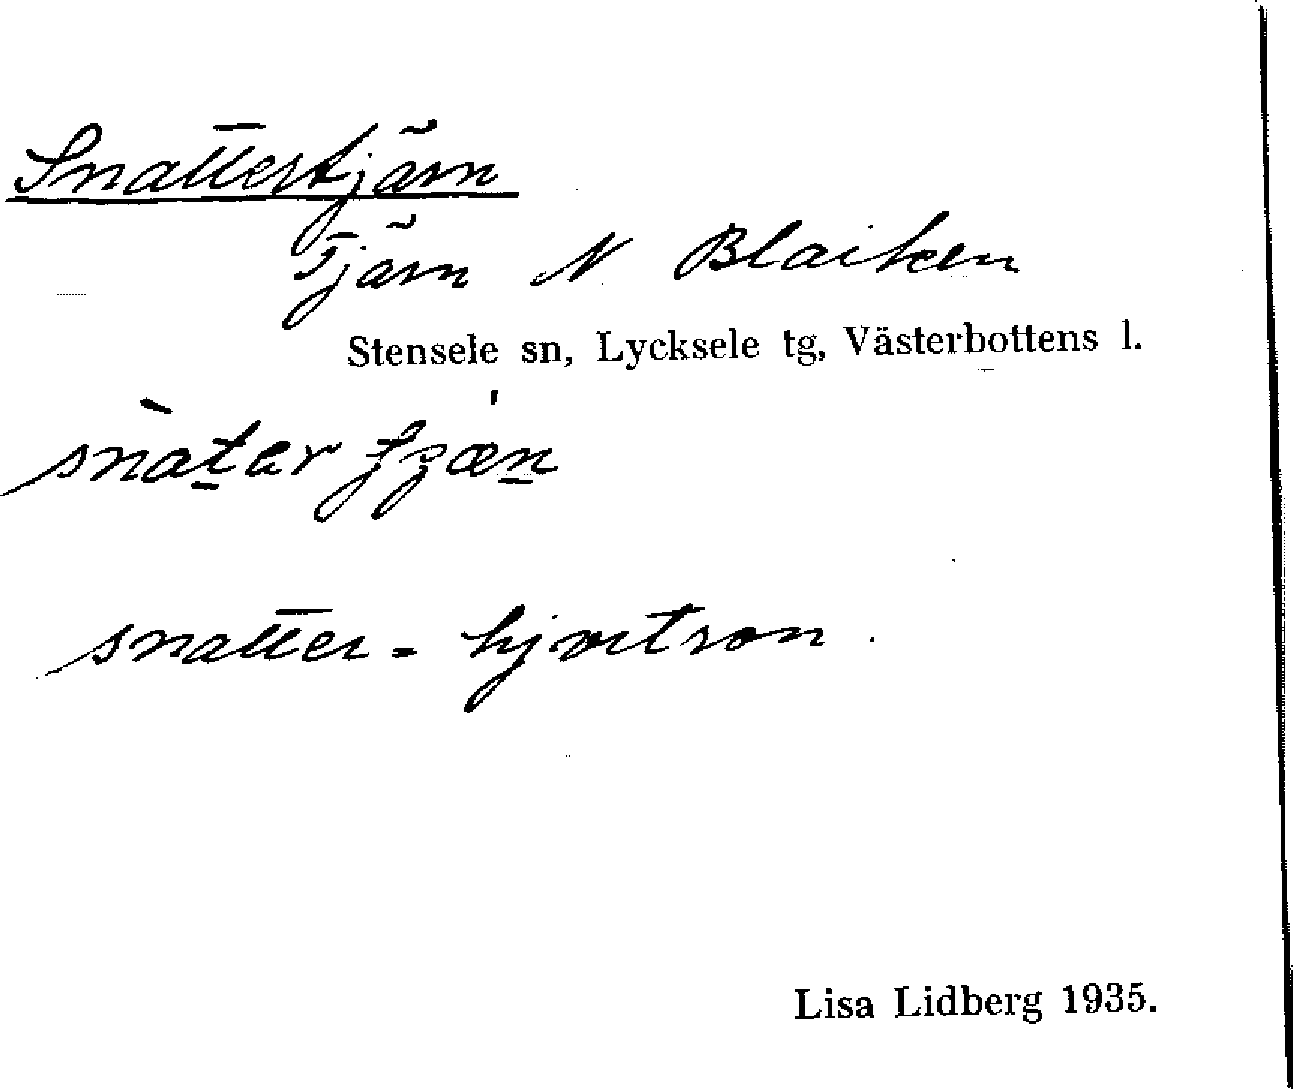 Snattertjärn
Tjärn N Blaiken
Stensele sn, Lycksele tg, Västerbottens l.
snatter - hjortron.
Lisa Lidberg 1935.